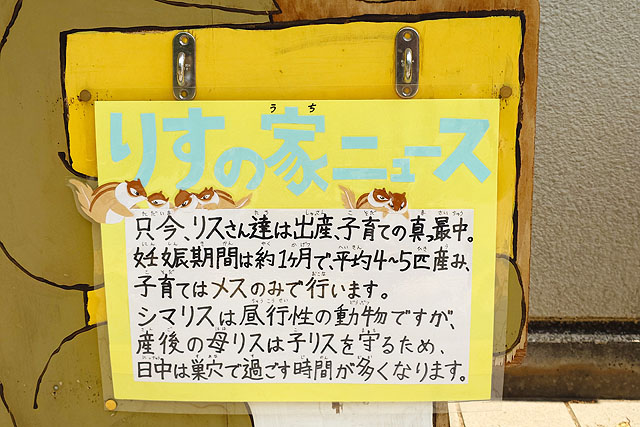 りすの家ニュース
只今、リスさん達は出産、子育ての真っ最中。
妊娠期間は約1ヶ月で、平均4~5匹産み、
子育てはメスのみで行います。
シマリスは昼行性の動物ですが、
産後の母リスは子リスを守るため、
日中は巣穴で過ごす時間が多くなります。